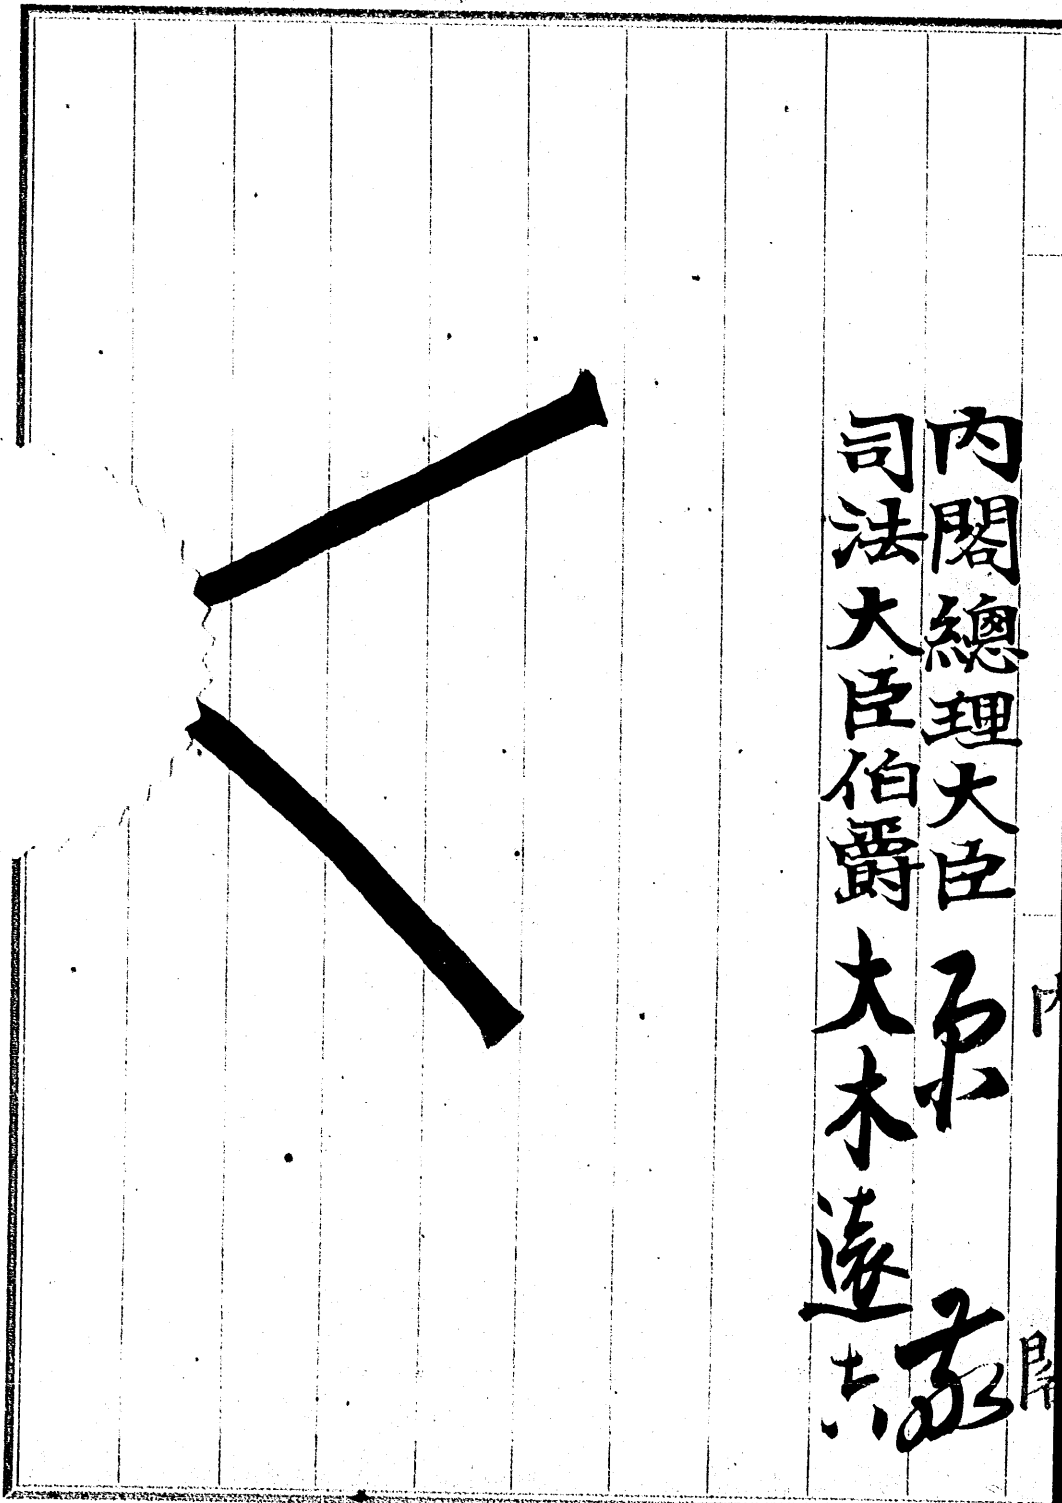 內閣總理大臣 原 敬
司法大臣伯爵 大木遠吉
內閣